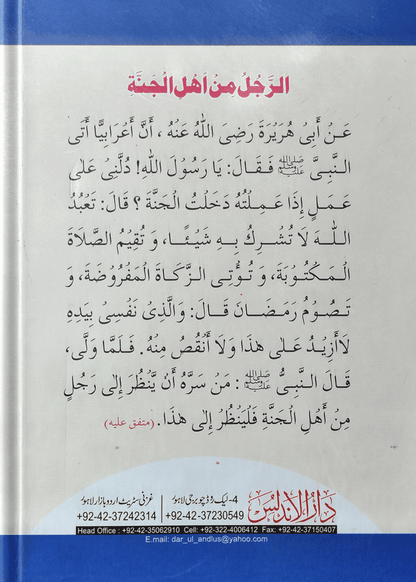 الرَّجُلُ مِنْ اَهْلِ الْجَنَّةِ
عَنْ أَبِىْ هُرَيْرَةَ رَضِىَ اللّٰهُ عَنْهُ ، أَنَّ أَعْرَابِيًّا أَتَى
النَّبِىَّ ﷺ فَقَالَ: يَا رَسُوْلَ اللّٰهِ! دُلَّنِىْ عَلٰى
عَمَلٍ إِذَا عَمِلْتُهُ دَخَلْتُ الْجَنَّةَ ؟ قَالَ: تَعْبُدُ
اللّٰهَ لَا تُشْرِكُ بِهِ شَيْئًا، وَ تُقِيْمُ الصَّلَاةَ
الْمَكْتُوْبَةَ، وَ تُؤَتِّى الزَّكَاةَ الْمَفْرُوْضَةَ، وَ
تَصُوْمُ رَمَضَانَ قَالَ: وَالَّذِىْ نَفْسِىْ بِيَدِهِ
لَا أَزِيْدُ عَلٰى هٰذَا وَ لَا أَنْقُصُ مِنْهُ. فَلَمَّا وَلّٰى،
قَالَ النَّبِىُّ ﷺ : مَنْ سَرَّهُ أَنْ يَّنْظُرَ إِلٰى رَجُلٍ
مِنْ أَهْلِ الْجَنَّةِ فَلْيَنْظُرْ إِلٰى هٰذَا. (متفق عليه)
دَارُ الأندلس
4- لیک روڈ چوبرجی لاہور
+92-42-37230549
غزنی سٹریٹ اردو بازار لاہور
+92-42-37242314
Head Office : +92-42-35062910 Cell: +92-322-4006412 Fax: +92-42-37150407
E.mail: dar_ul_andlus@yahoo.com